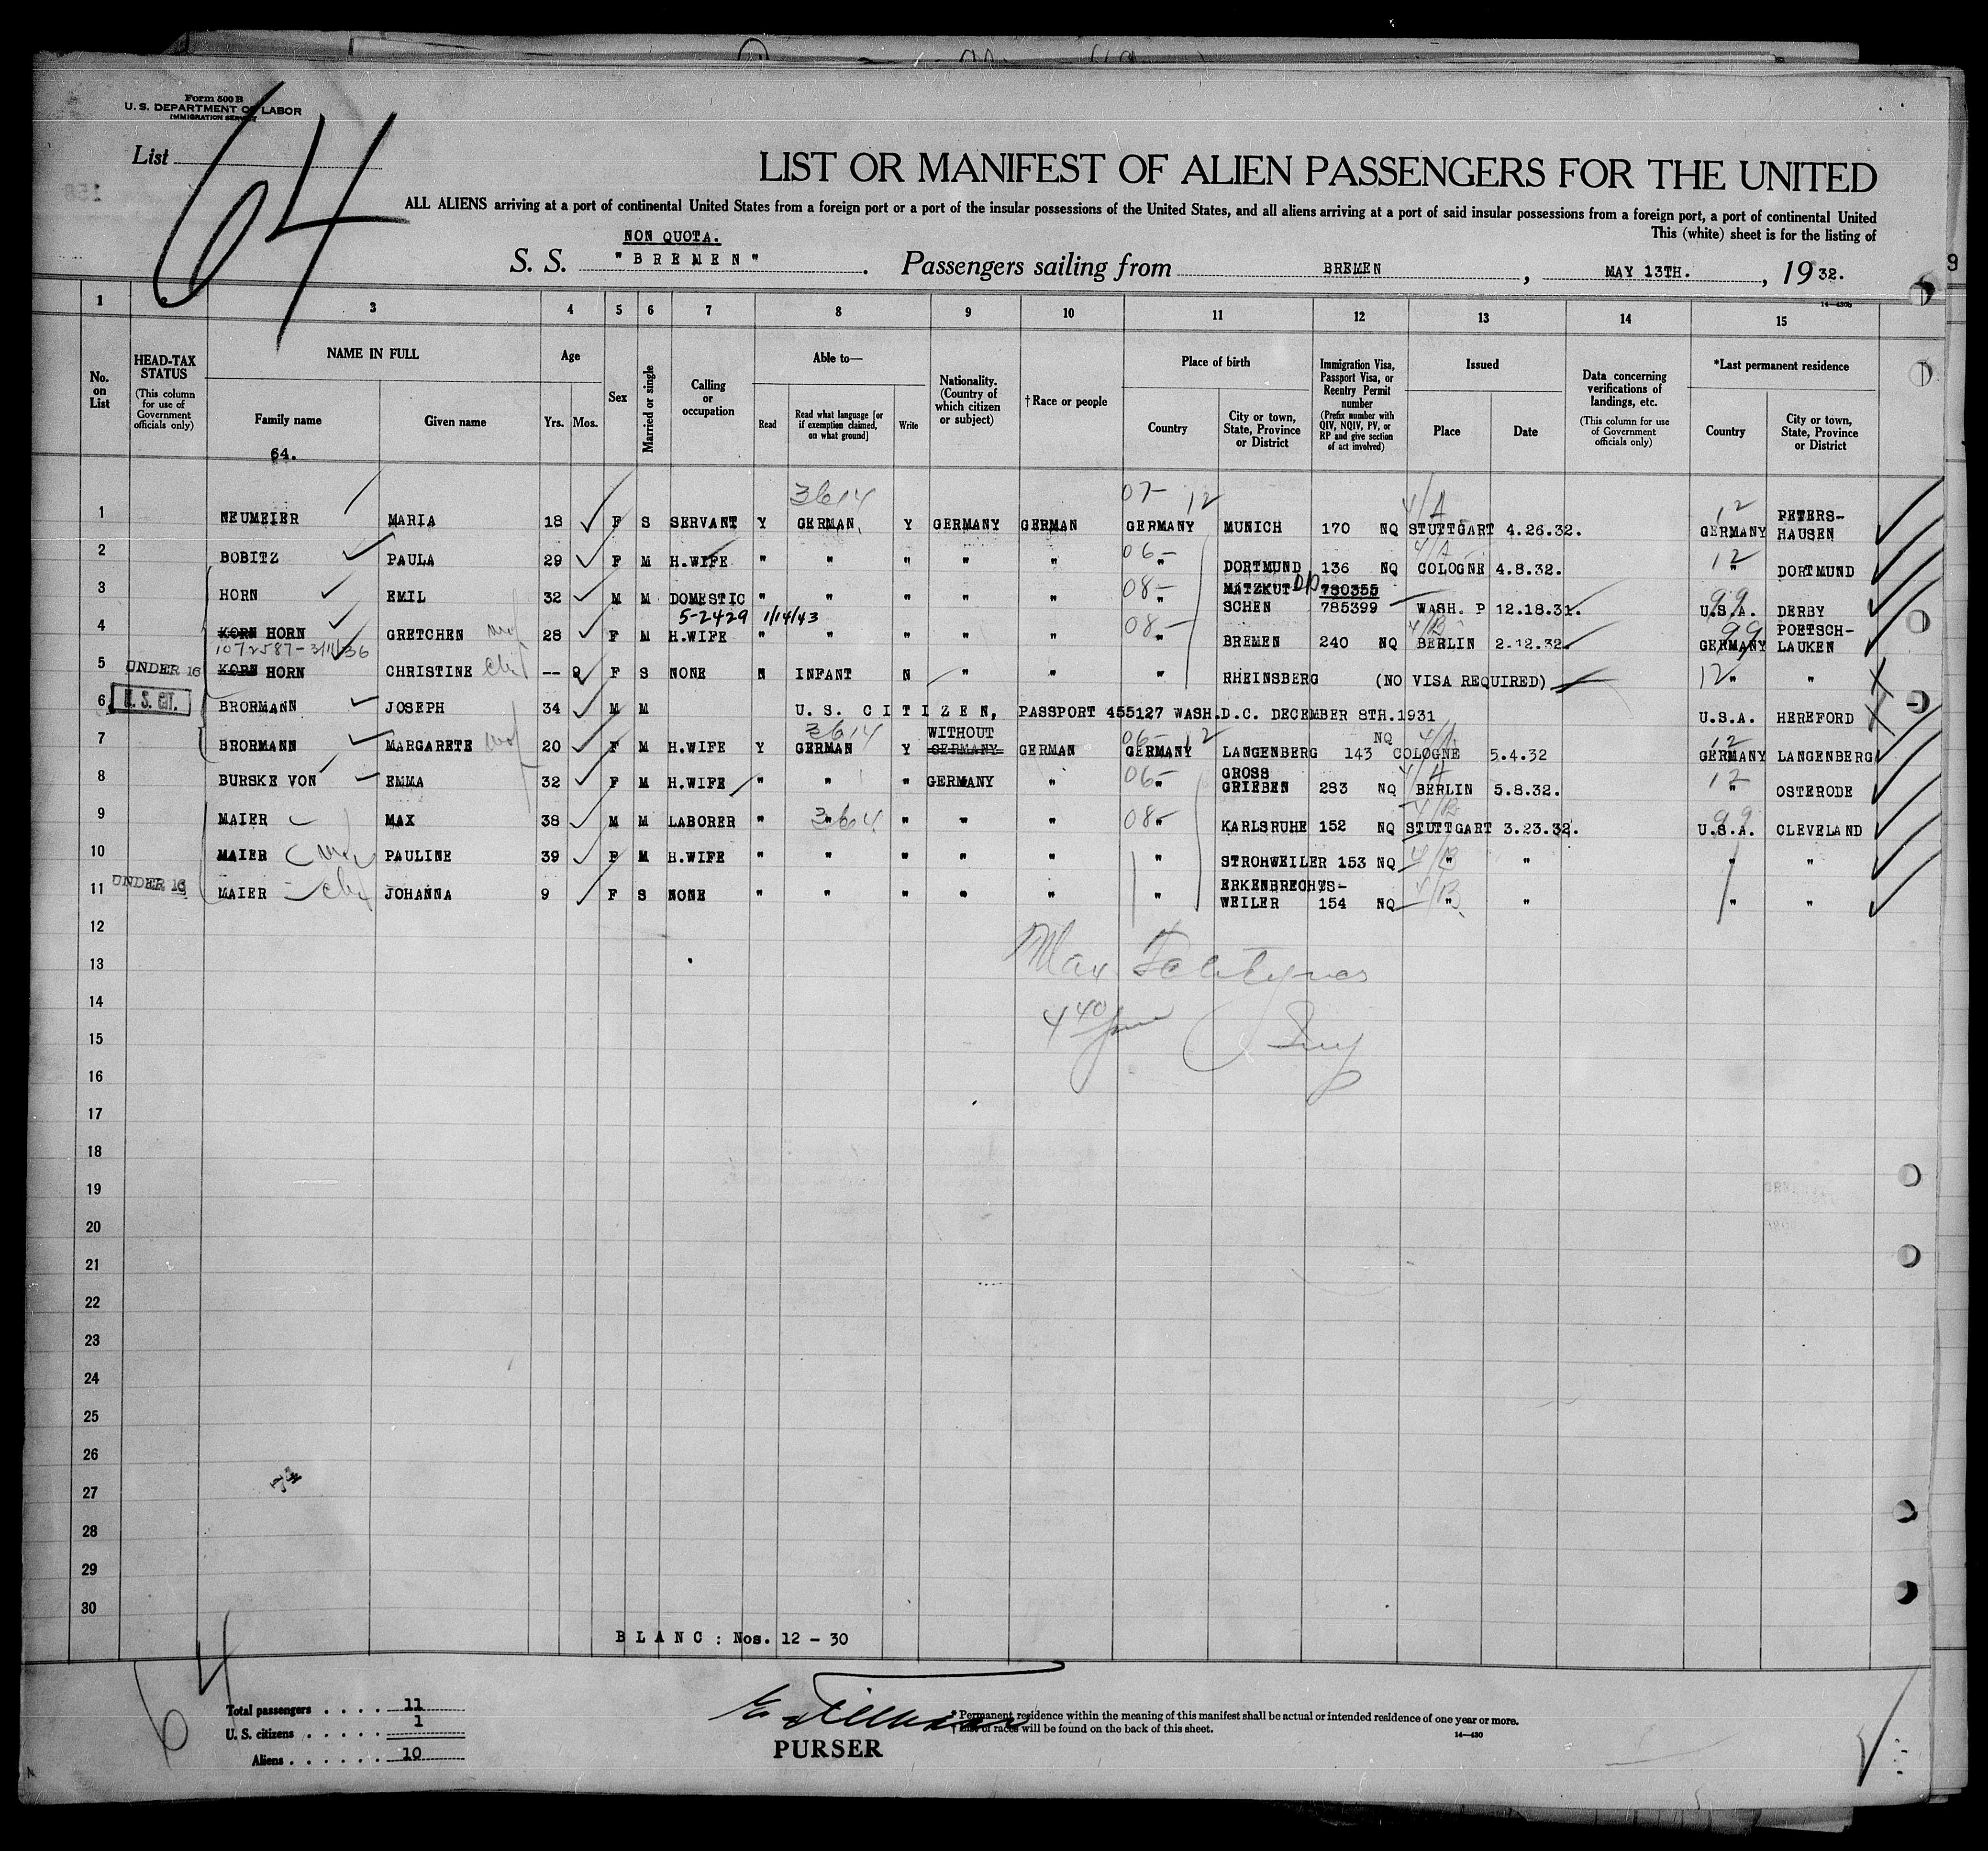 Form 500 B
U. S. DEPARTMENT OF LABOR
IMMIGRATION SERVICE
List
64
LIST OR MANIFEST OF ALIEN PASSENGERS FOR THE UNITED
ALL ALIENS arriving at a port of continental United States from a foreign port or a port of the insular possessions of the United States, and all aliens arriving at a port of said insular possessions from a foreign port, a port of continental United
This (white) sheet is for the listing of
NON QUOTA.
S. S. "BREMEN". Passengers sailing from BREMEN, MAY 13TH., 1932.
14—430b
1 3 4 5 6 7 8 9 10 11 12 13 14 15
No. on List
HEAD-TAX STATUS (This column for use of Government officials only)
NAME IN FULL
Family name
Given name
64.
Age
Yrs. Mos.
Sex
Married or single
Calling or occupation
Able to—
Read
Read what language [or if exemption claimed, on what ground]
Write
Nationality. (Country of which citizen or subject)
†Race or people
Place of birth
Country
City or town, State, Province or District
Immigration Visa, Passport Visa, or Reentry Permit number (Prefix number with QIV, NQIV, PV, or RP and give section of act involved)
Issued
Place
Date
Data concerning verifications of landings, etc. (This column for use of Government officials only)
*Last permanent residence
Country
City or town, State, Province or District
3614 07- 12 4/A 12
1 NEUMEIER MARIA 18 F S SERVANT Y GERMAN, Y GERMANY GERMAN GERMANY MUNICH 170 NQ STUTTGART 4.26.32. GERMANY PETERS-HAUSEN
06- 4/A 12
2 BOBITZ PAULA 29 F M H.WIFE " " " " " " DORTMUND 136 NQ COLOGNE 4.8.32. " DORTMUND
08- 99
3 HORN EMIL 32 M M DOMESTIC " " " " " " MATZKUTSCHEN 780355 785399 WASH. P 12.18.31. U.S.A. DERBY
5-2429 1/14/43
08- 4/B 99
4 KORN HORN GRETCHEN wf 28 F M H.WIFE " " " " " " BREMEN 240 NQ BERLIN 2.12.32. GERMANY POETSCH-LAUKEN
1072587-3/11/36
5 UNDER 16 KORN HORN CHRISTINE — 9 F S NONE N INFANT N " " " RHEINSBERG (NO VISA REQUIRED) 12 " "
6 U. S. CIT. BRORMANN JOSEPH 34 M M U.S. CITIZEN, PASSPORT 455127 WASH.D.C. DECEMBER 8TH.1931 U.S.A. HEREFORD
3614 WITHOUT 06- 12 NQ 4/A 12
7 BRORMANN MARGARETE 20 F M H.WIFE Y GERMAN Y GERMANY GERMAN GERMANY LANGENBERG 143 COLOGNE 5.4.32 GERMANY LANGENBERG
06- 4/A 12
8 BURSKE VON EMMA 32 F M H.WIFE " " " GERMANY " " GROSS GRIEBEN 283 NQ BERLIN 5.8.32. " OSTERODE
3604 08- 4/B 99
9 MAIER MAX 38 M M LABORER " " " " " " KARLSRUHE 152 NQ STUTTGART 3.23.32. U.S.A. CLEVELAND
10 MAIER PAULINE 39 F M H.WIFE " " " " " " STROHWEILER 153 NQ 4/B " " " "
11 UNDER 16 MAIER JOHANNA 9 F S NONE " " " " " " ERKENBRECHTS-WEILER 154 NQ 4/B " " " "
12
13
14
15
16
17
18
19
20
21
22
23
24
25
26
27
28
29
30
BLANC: Nos. 12 – 30
64
Total passengers . . . . 11
U. S. citizens . . . . . 1
Aliens . . . . . . 10
PURSER
* Permanent residence within the meaning of this manifest shall be actual or intended residence of one year or more.
† List of races will be found on the back of this sheet.
14—430